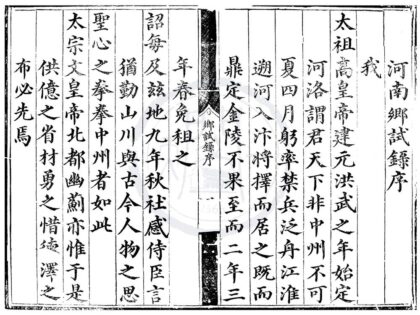 河南鄉試錄序
我
太祖高皇帝建元洪武之年始定
河洛謂君天下非中州不可
夏四月躬率禁兵泛舟江淮
遡河入汴將擇而居之既而
鼎定金陵不果至而二年三
鄉試錄序
年春免租之
詔每及茲地九年秋社感侍臣言
猶勤山川與古今人物之思
聖心之拳拳中州者如此
太宗文皇帝北都幽薊亦惟于是
供億之省材勇之惜德澤之
布必先焉